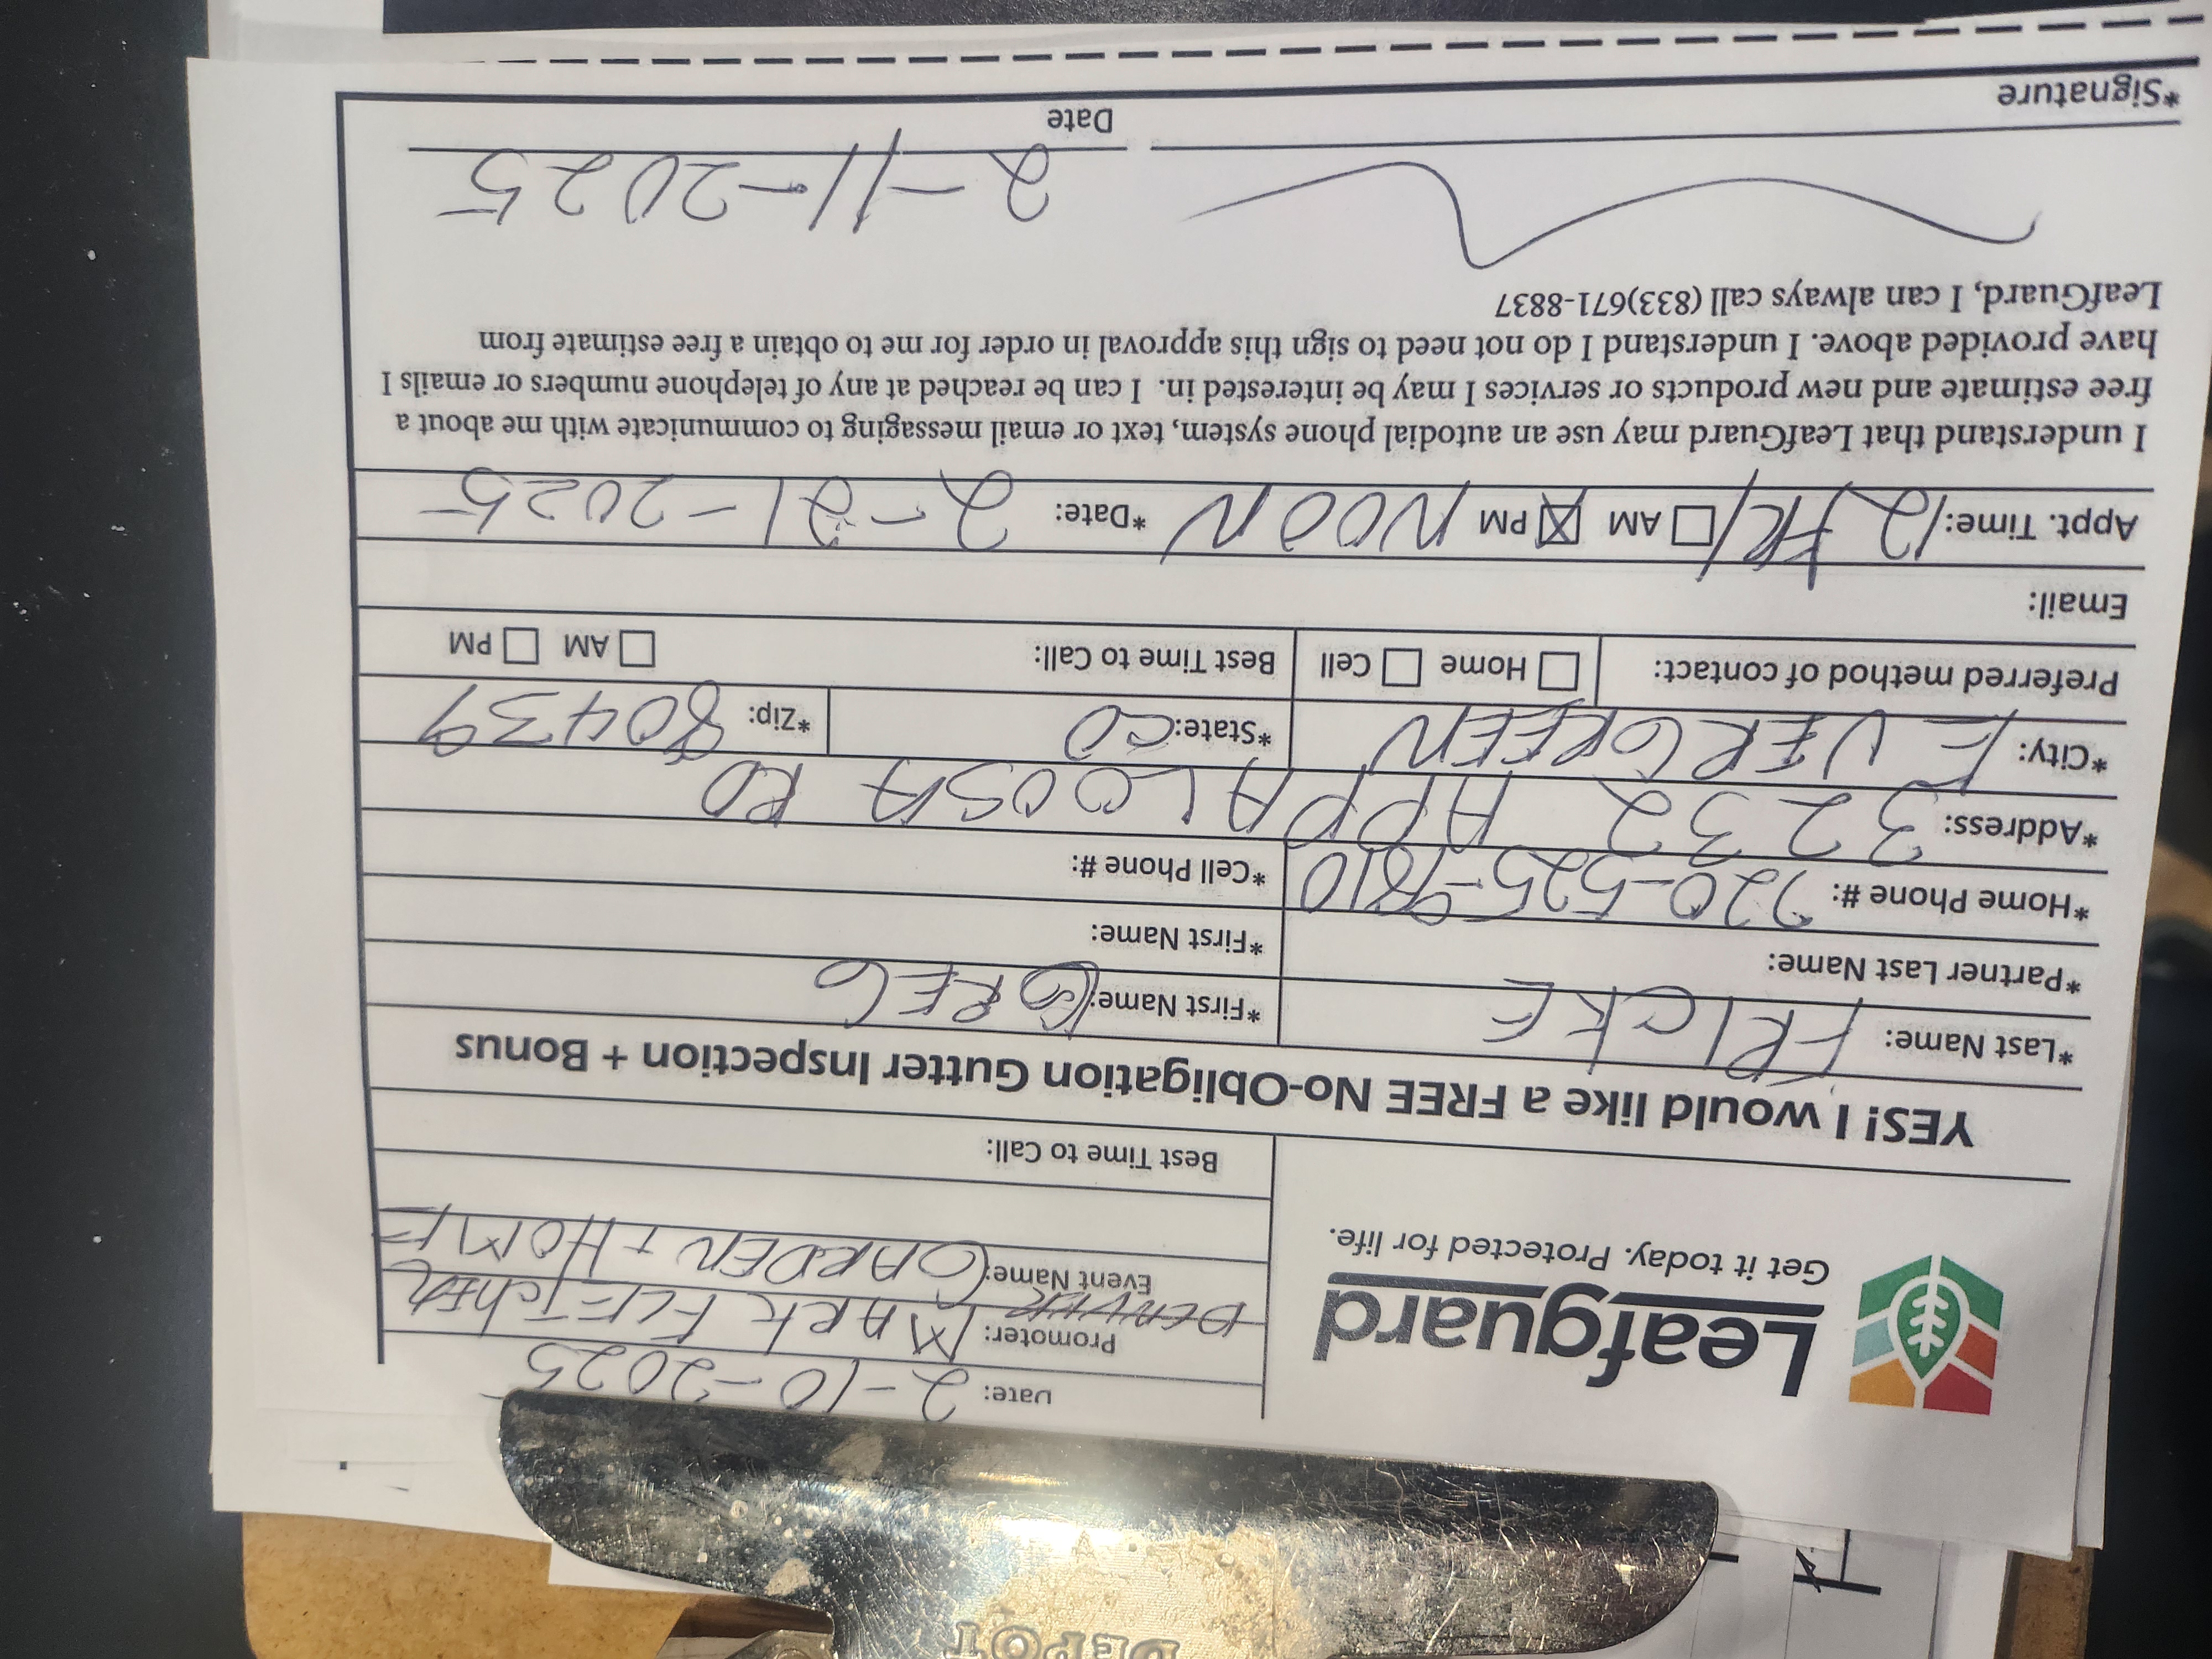 DEPOT
Date: 2-10-2025
Promoter: MARK FLETCHER
Event Name: GARDEN + HOME
Leafguard
Get it today. Protected for life.
Best Time to Call:
YES! I would like a FREE No-Obligation Gutter Inspection + Bonus
*Last Name: FRICKE *First Name: GREG
*Partner Last Name: *First Name:
*Home Phone #: 720-525-9810 *Cell Phone #:
*Address: 3232 APPALOOSA RD
*City: EVERGREEN *State: CO *Zip: 80439
Preferred method of contact: Home Cell Best Time to Call: AM PM
Email:
Appt. Time: 12 FRI AM PM NOON *Date: 2-21-2025
I understand that LeafGuard may use an autodial phone system, text or email messaging to communicate with me about a
free estimate and new products or services I may be interested in. I can be reached at any of telephone numbers or emails I
have provided above. I understand I do not need to sign this approval in order for me to obtain a free estimate from
LeafGuard, I can always call (833)671-8837
2-11-2025
*Signature Date